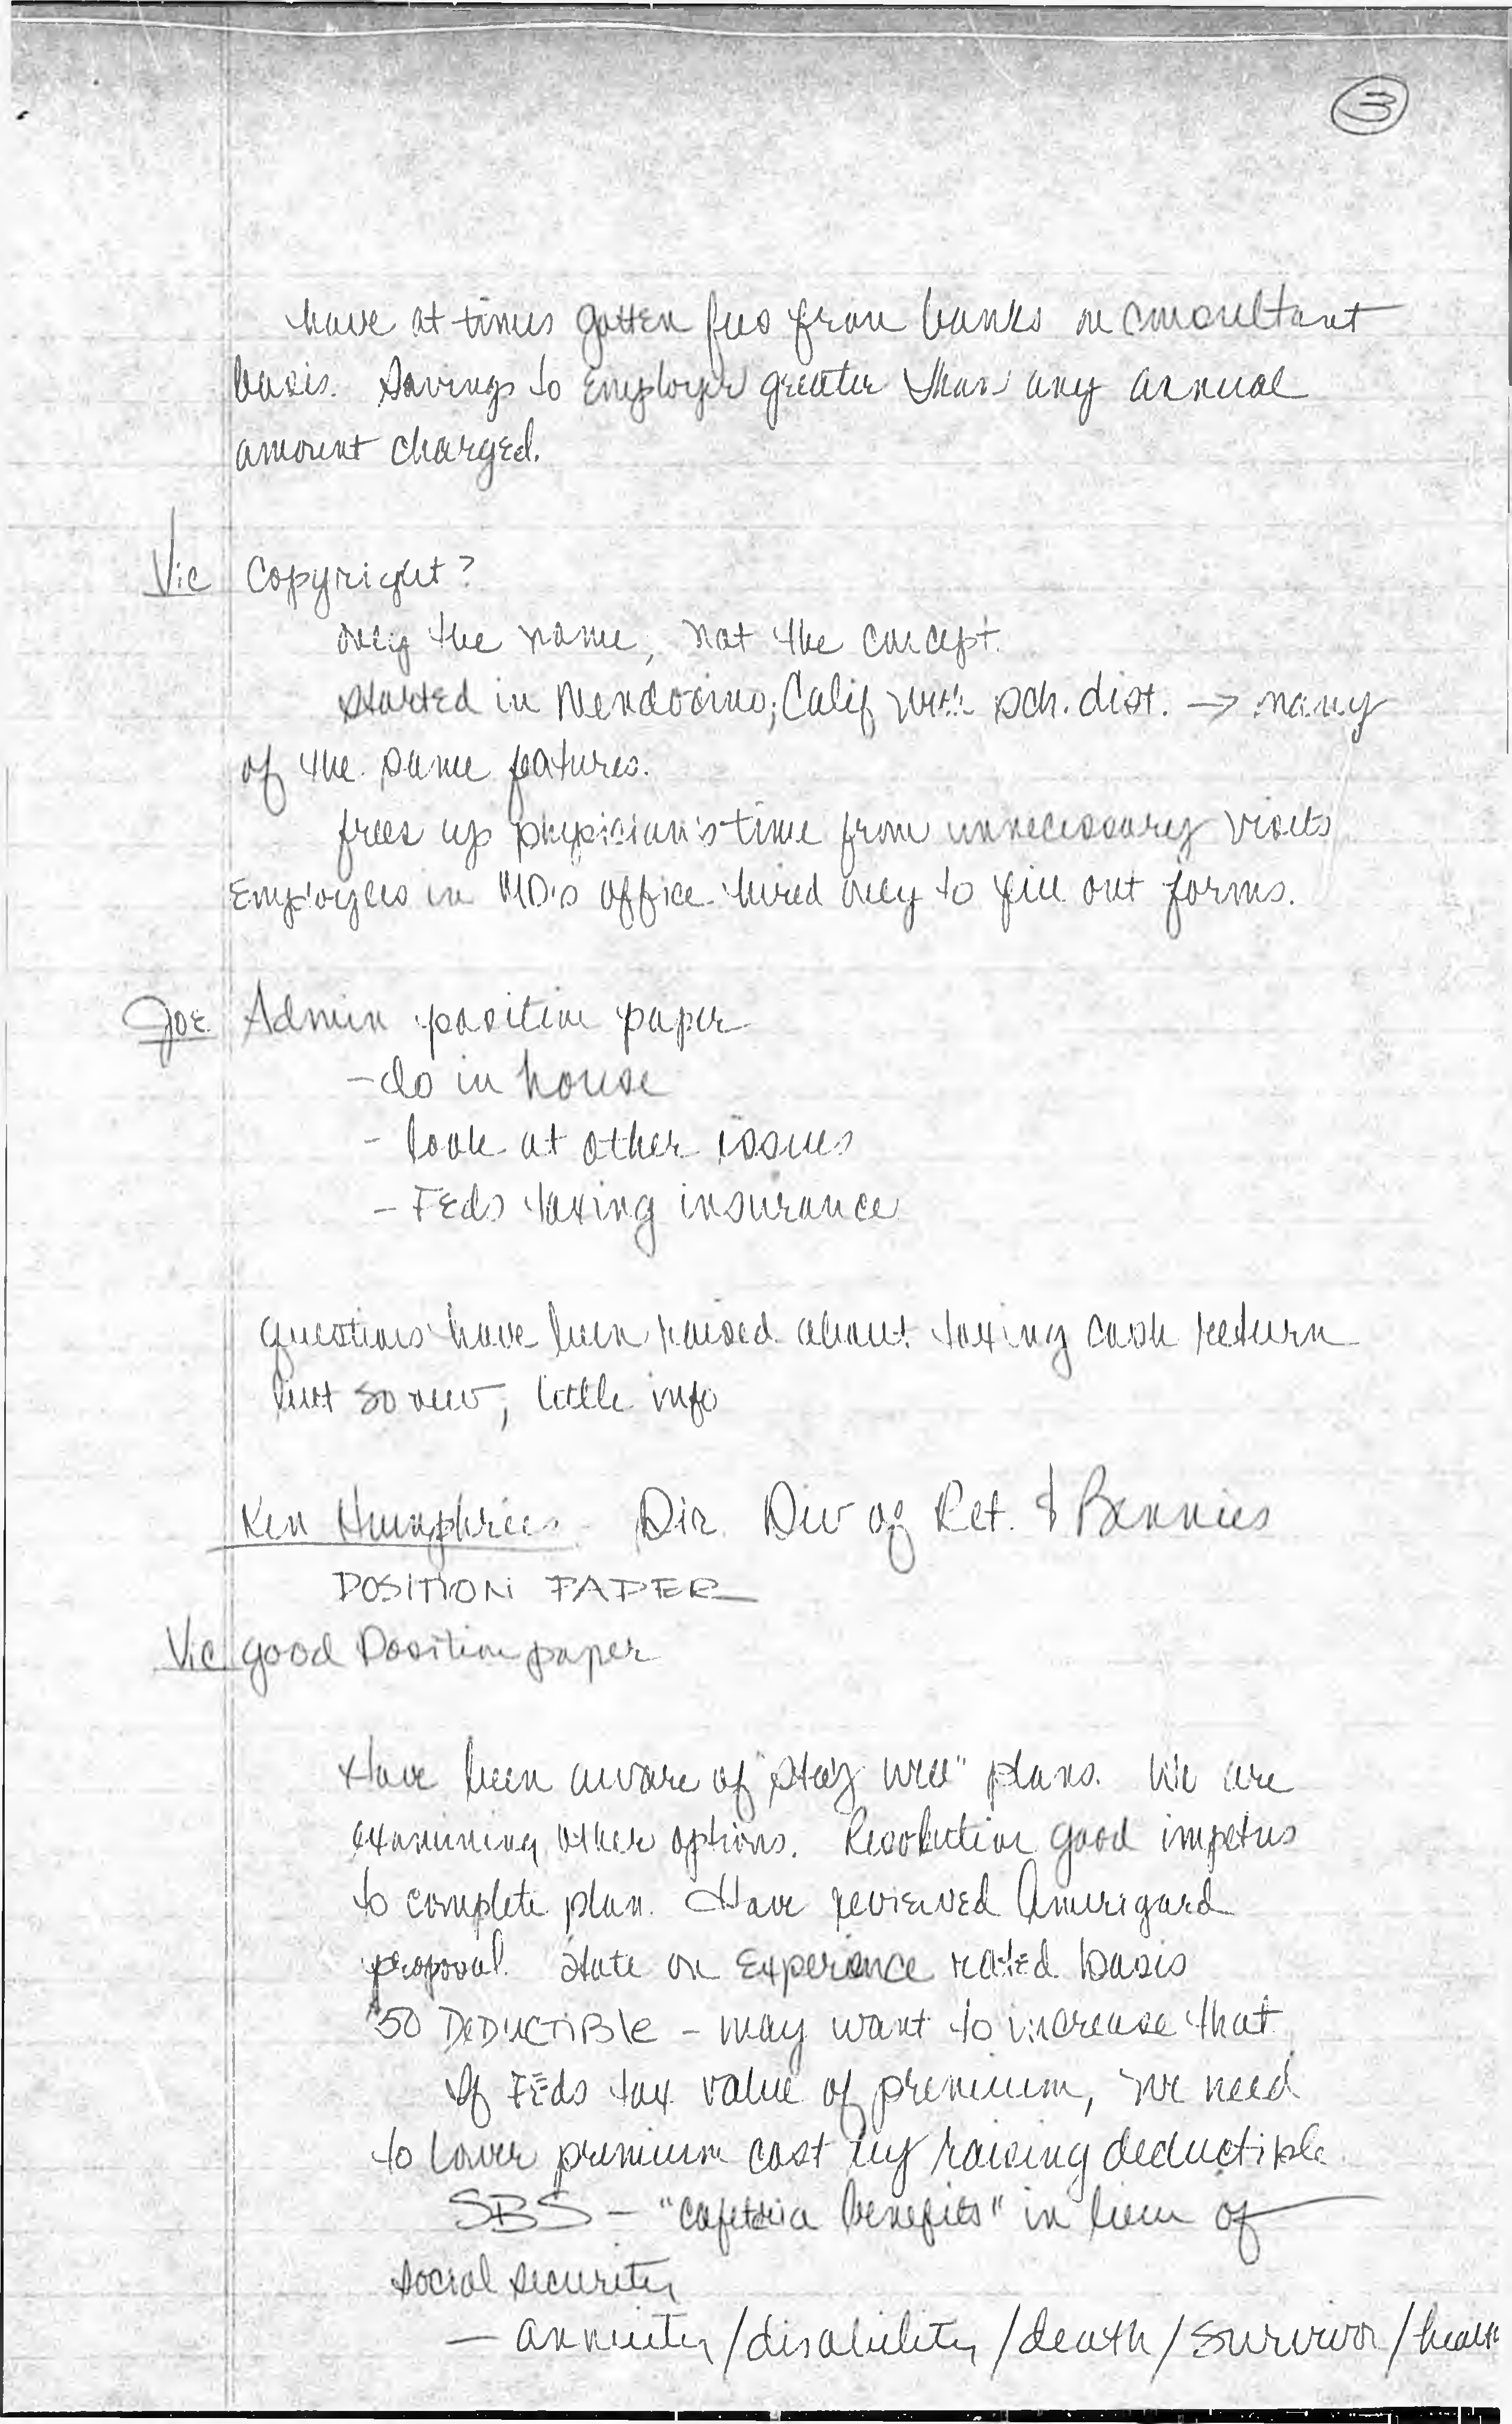 3
have at times gotten fees from banks on consultant
basis. Savings to Employer greater than any annual
amount charged.
Vic Copyright?
only the name, not the concept.
started in Mendocino, Calif with sch. dist. → many
of the same features.
frees up physician's time from unnecessary visits
Employees in MD's office hired only to fill out forms.
Joe Admin position paper
- do in house
- look at other issues
- Feds taxing insurance
questions have been raised about taxing cash return
but so new, little info
Ken Humphries Dir. Div of Ret. & Bennies
POSITION PAPER
Vic good Position paper
Have been aware of "stay well" plans. We are
examining other options. Resolution good impetus
to complete plan. Have reviewed Amerigard
proposal. State on Experience rated basis
$50 DEDUCTIBLE - may want to increase that.
If FEds tax value of premium, we need
to lower premium cost by raising deductible.
SBS - "cafeteria benefits" in lieu of
social security
- annuity/disability/death/survivor/health